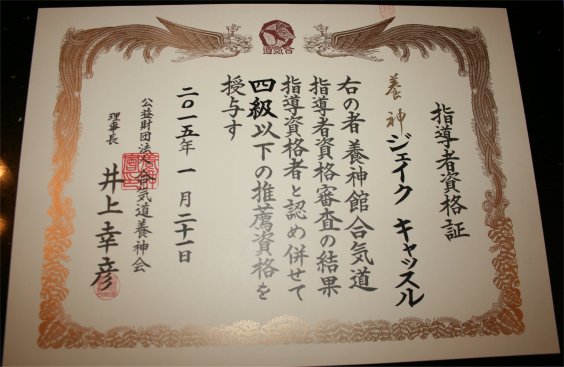 指導者資格証
養神 ジェイク キャッスル
右の者 養神館合気道
指導者資格審査の結果
指導資格者と認め併せて
四級以下の推薦資格を
授与す
二〇一五年 一月 二十一日
公益財団法人合気道養神会
理事長 井上幸彦